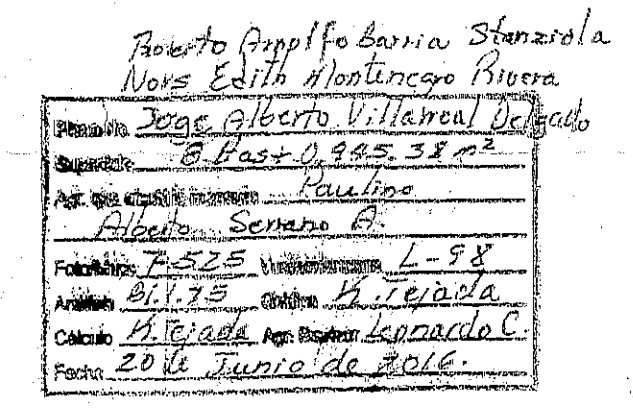 Roberto Arnolfo Barria Stanziola
Nors Edith Montenegro Rivera
Plano No. Jorge Alberto Villarreal Delgado
Superficie 0 Has + 0,945.38 m²
Agr. que Paulino
Alberto Serrano A.
7-525 L-98
K. Tejada
Cálculo K. Tejada Agr. Leonardo C.
Fecha 20 de Junio de 2016.